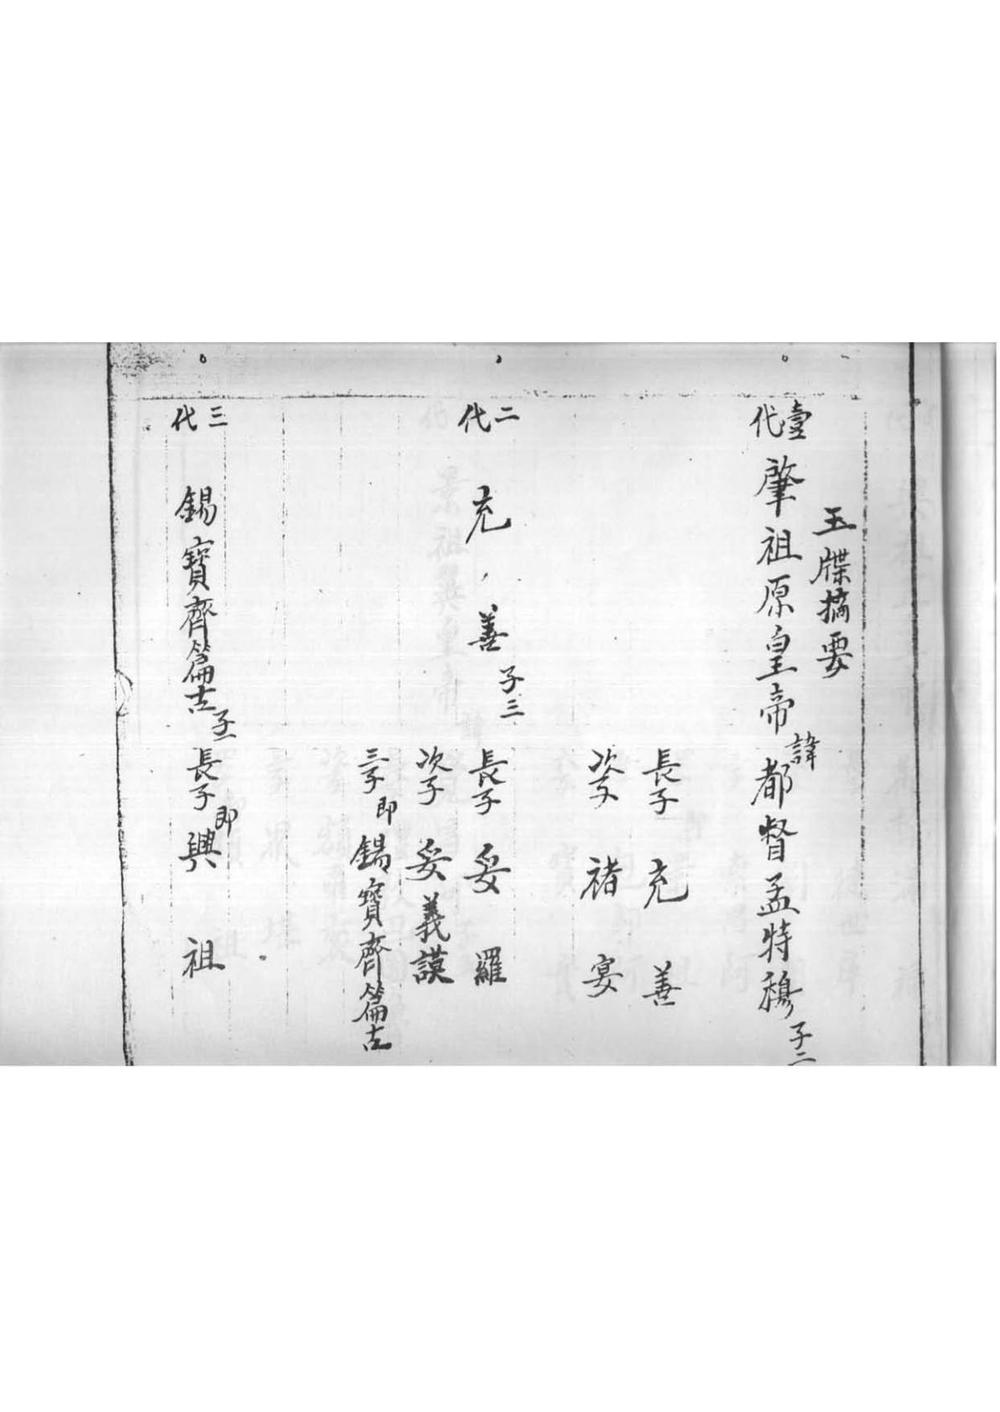 玉牒摘要
壹代 肇祖原皇帝諱都督孟特穆 子二
長子 充善
次子 褚宴
二代 充善 子三
長子 妥羅
次子 妥義謨
三子 即 錫寶齊篇古
三代 錫寶齊篇古 子一
長子 即 興祖